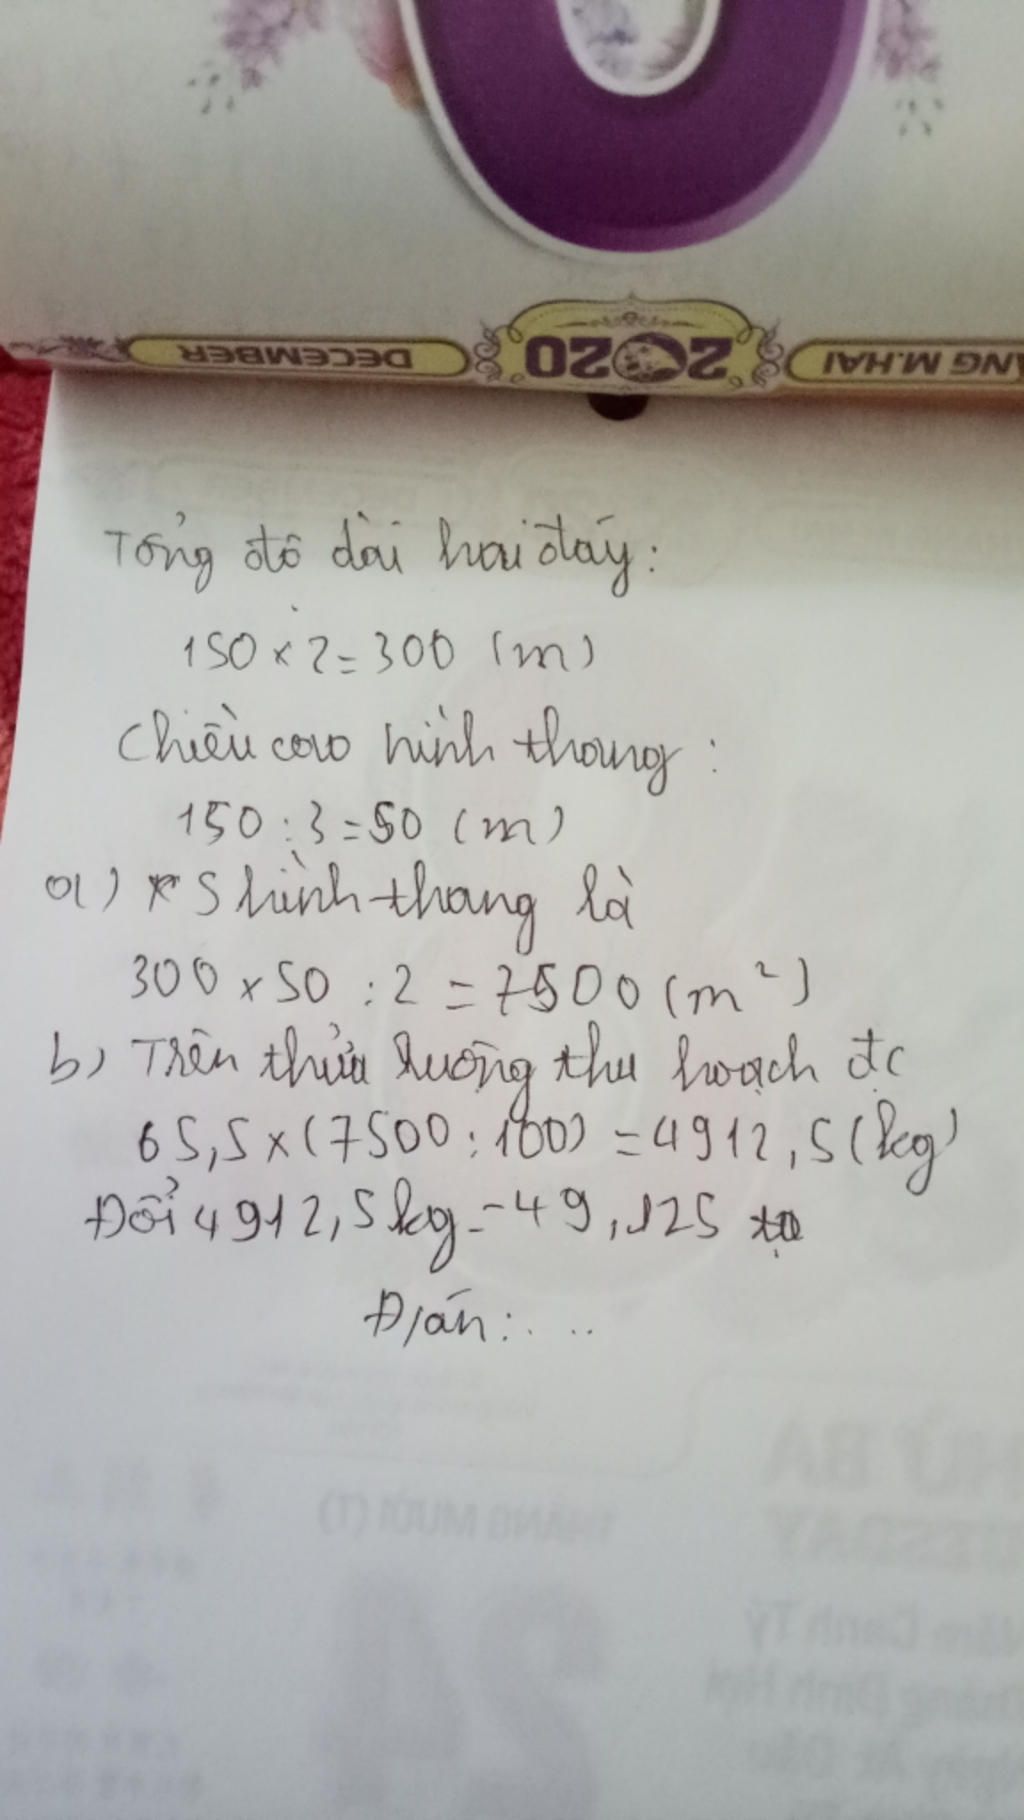 DECEMBER
2020
NG M.HAI
Tổng độ dài hai đáy:
150 × 2 = 300 (m)
Chiều cao hình thang:
150 : 3 = 50 (m)
a) S hình thang là
300 × 50 : 2 = 7500 (m²)
b) Trên thửa ruộng thu hoạch đc
65,5 × (7500 : 100) = 4912,5 (kg)
Đổi 4912,5 kg = 49,125 tạ
Đ/án: . . .
THÁNG MƯỜI (T)
24